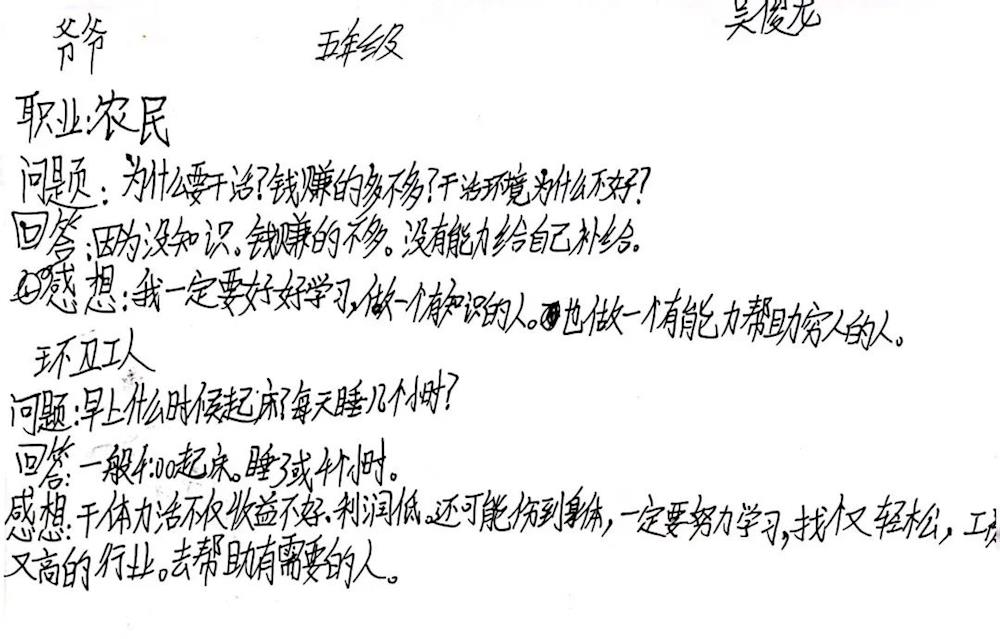 爷爷 五年级 吴俊龙
职业:农民
问题:为什么要干活?钱赚的多不多?干活环境为什么不好?
回答:因为没知识。钱赚的不多。没有能力给自己补给。
感想:我一定要好好学习,做一个有知识的人。也做一个有能力帮助穷人的人。
环卫工人
问题:早上什么时候起床?每天睡几个小时?
回答:一般4:00起床。睡3或4个小时。
感想:干体力活不仅收益不好、利润低。还可能伤到身体,一定要努力学习,找个又轻松,工
又高的行业。去帮助有需要的人。